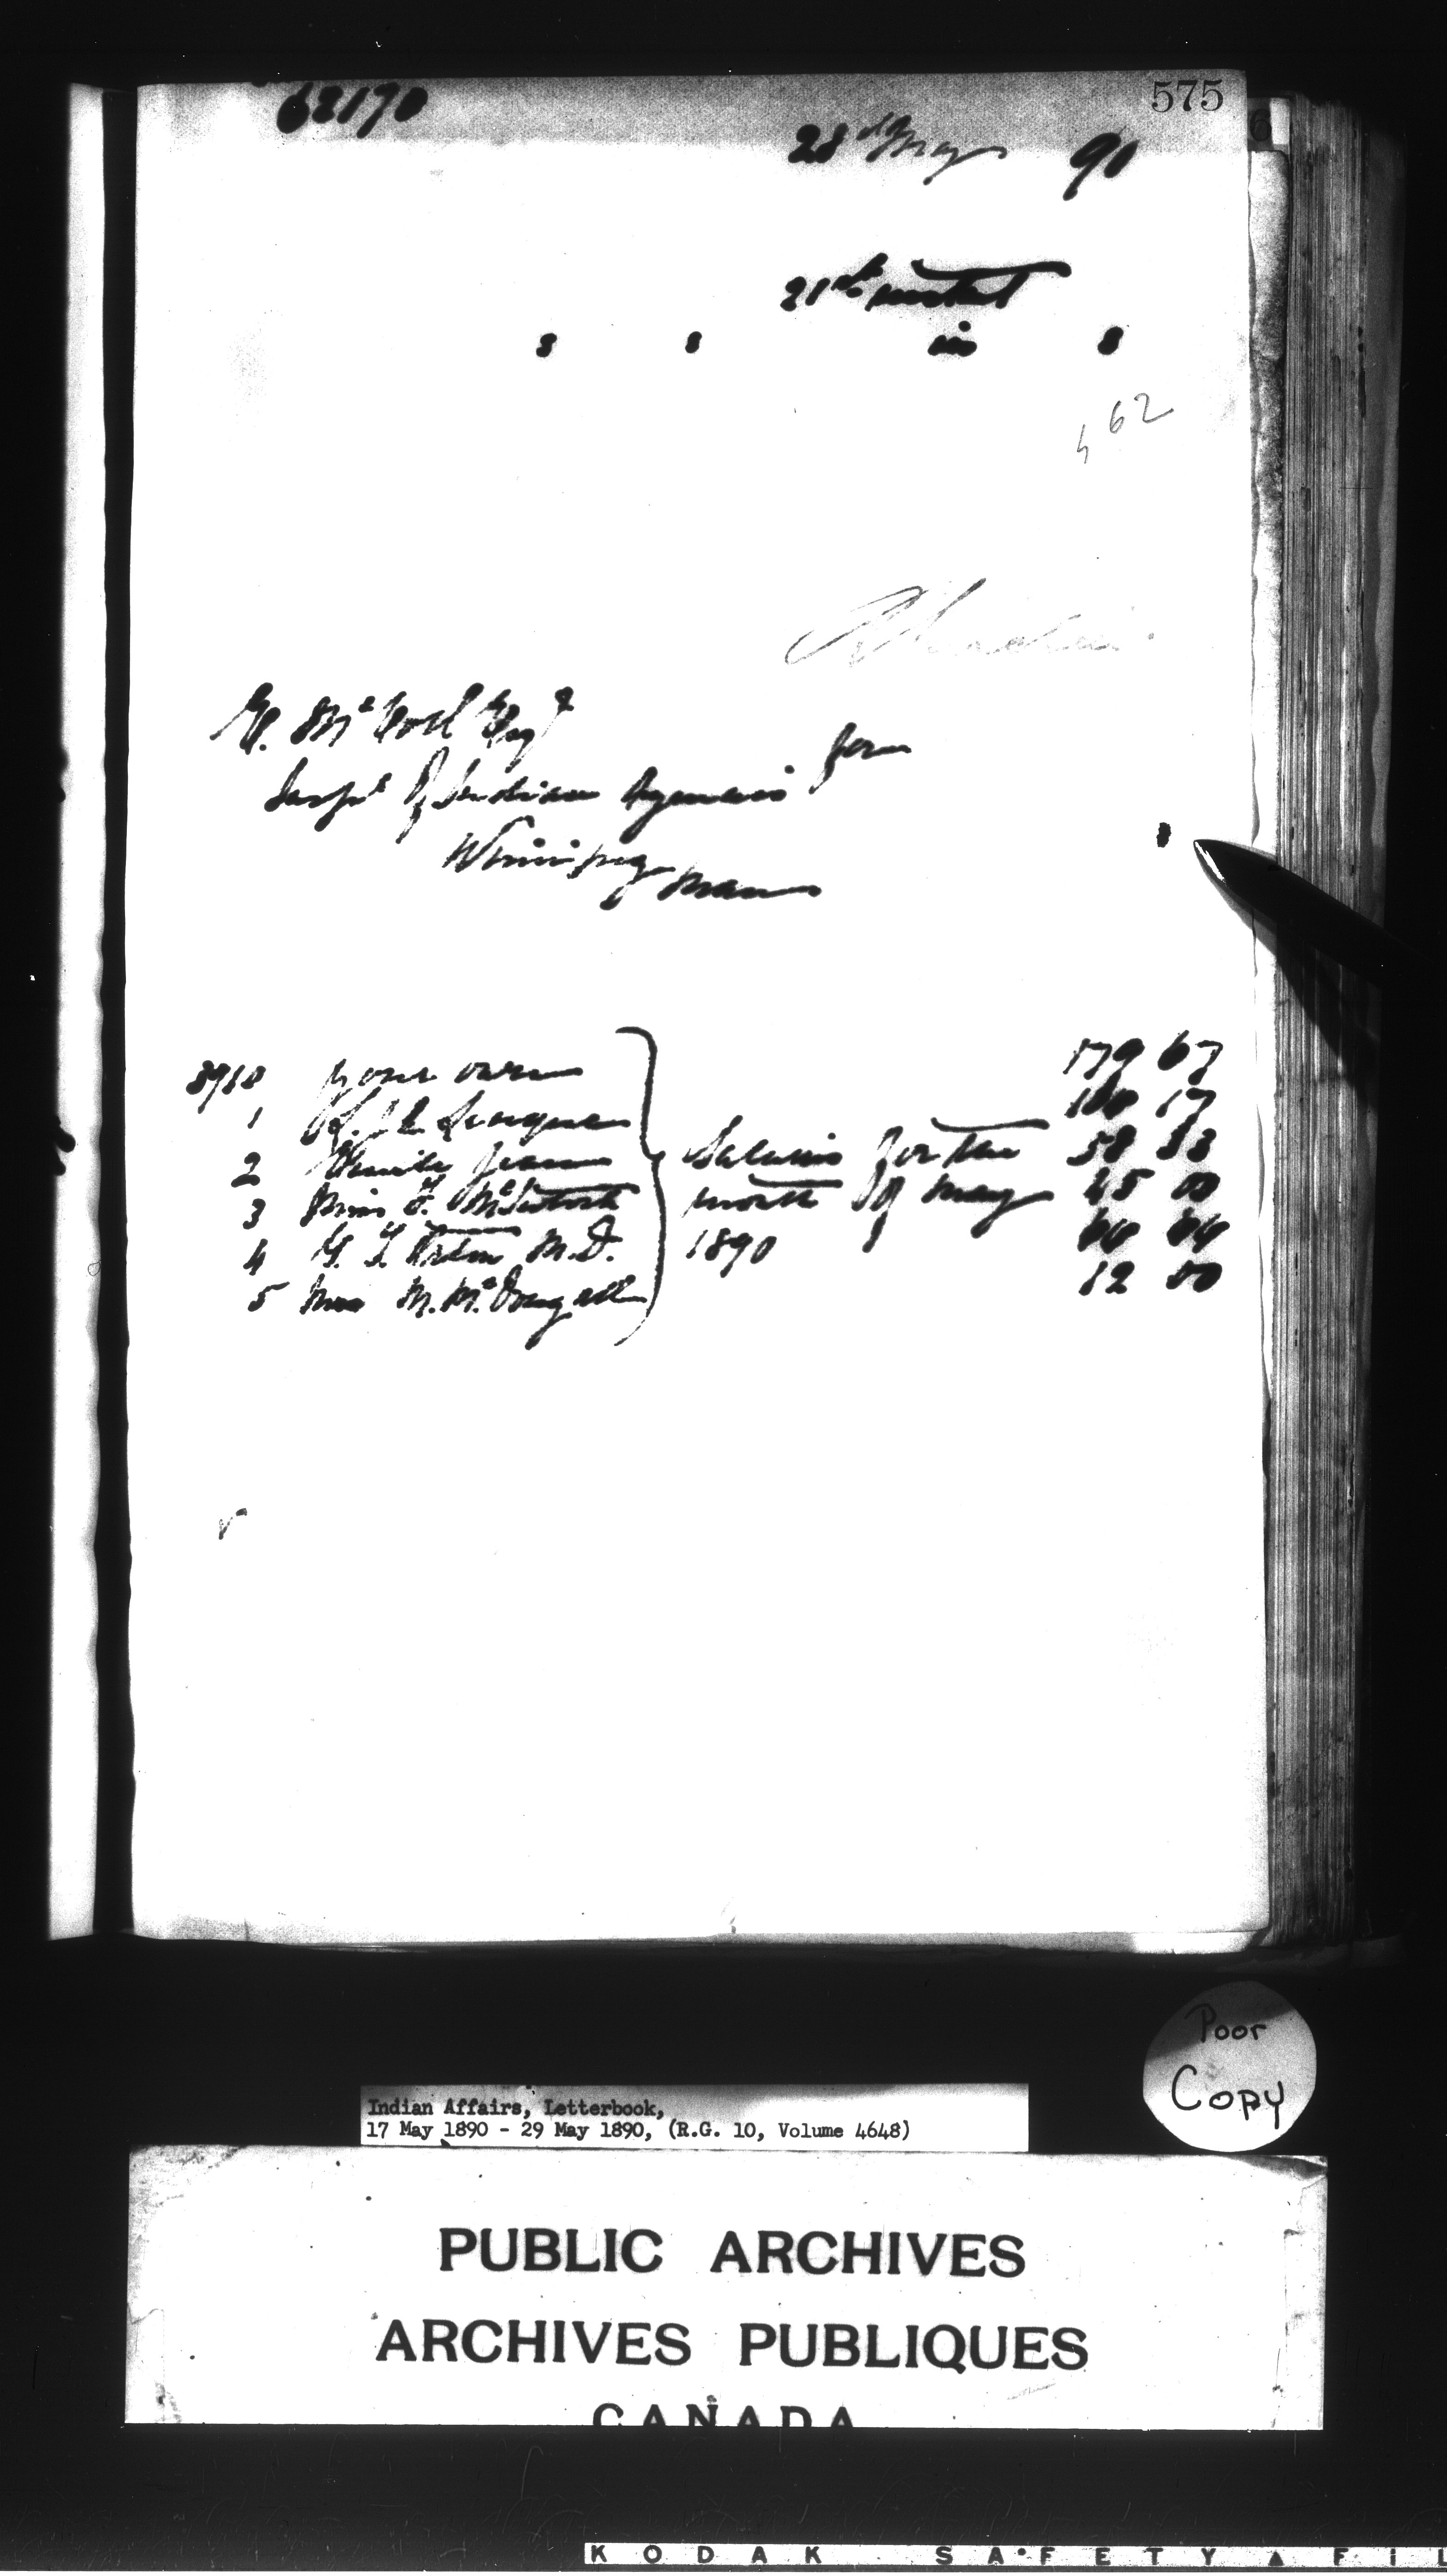 575
62170
28th May 90
21st instant
s s in s
462
E. McColl Esqr
for
Supt of Indian Agencies
Winnipeg
Man
8910 your own 179 67
1 L. J. A. Leveque 100 17
2 58 33
3 Miss F. McIntosh Salaries for the month of May 1890 45 00
4 G. T. Orton M.D. 66 66
5 Mrs M. McDougall 12 50
Poor
Copy
Indian Affairs, Letterbook,
17 May 1890 - 29 May 1890, (R.G. 10, Volume 4648)
PUBLIC ARCHIVES
ARCHIVES PUBLIQUES
CANADA
KODAK SAFETY FI